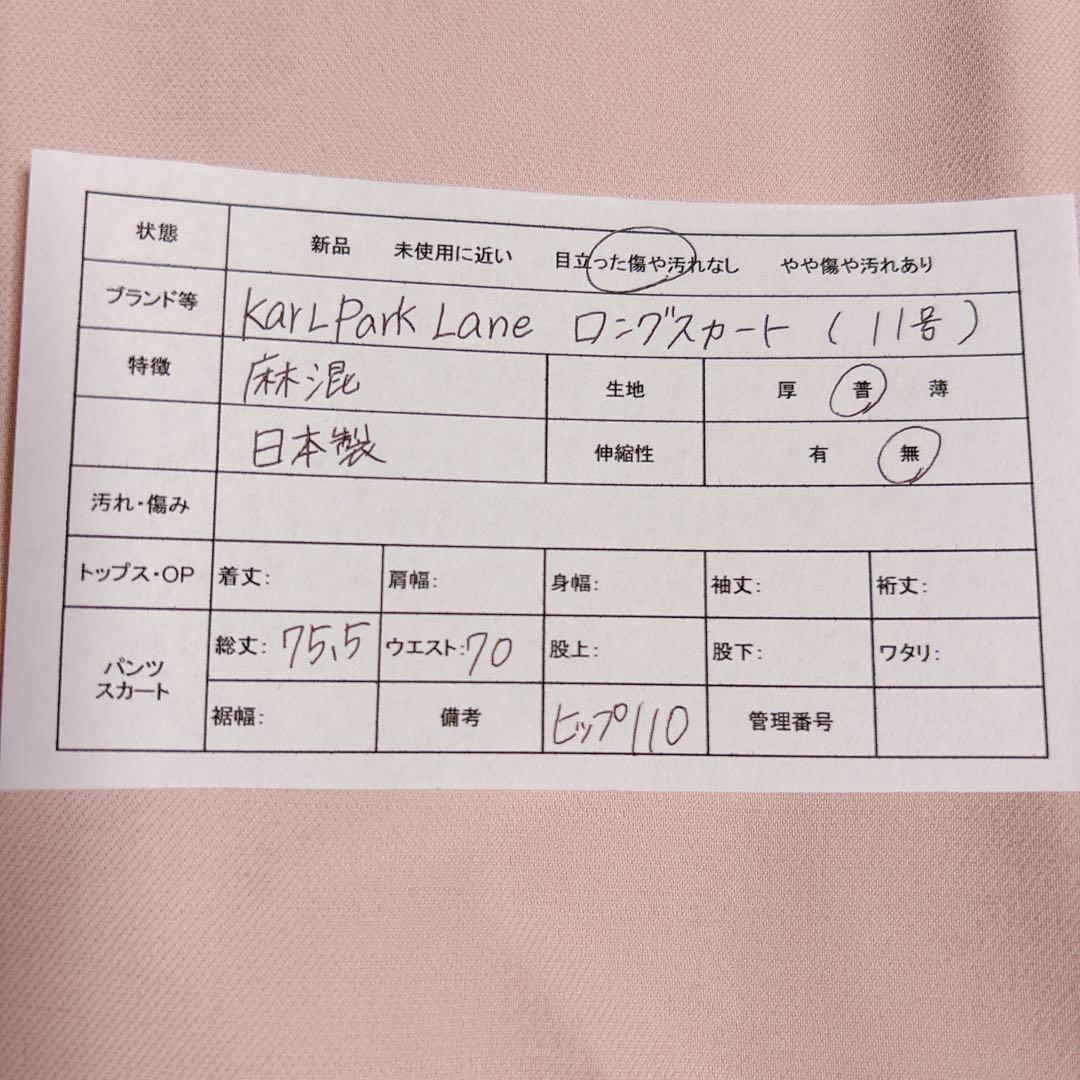 状態 新品 未使用に近い 目立った傷や汚れなし やや傷や汚れあり
ブランド等 KarL Park Lane ロングスカート (11号)
特徴 麻混 生地 厚 普 薄
日本製 伸縮性 有 無
汚れ・傷み
トップス・OP 着丈: 肩幅: 身幅: 袖丈: 裄丈:
パンツ スカート
総丈: 75.5 ウエスト: 70 股上: 股下: ワタリ:
裾幅: 備考 ヒップ110 管理番号